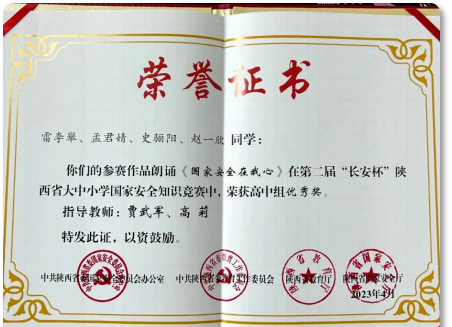 荣誉证书
雷李舉、孟君婧、史骊阳、赵一欣 同学：
你们的参赛作品朗诵《国家安全在我心》在第二届“长安杯”陕
西省大中小学国家安全知识竞赛中，荣获高中组优秀奖。
指导教师：贾武军、高 莉
特发此证，以资鼓励。
中共陕西省委国家安全委员会办公室 中共陕西省委教育工作委员会 陕西省教育厅 陕西省国家安全厅
2023年4月